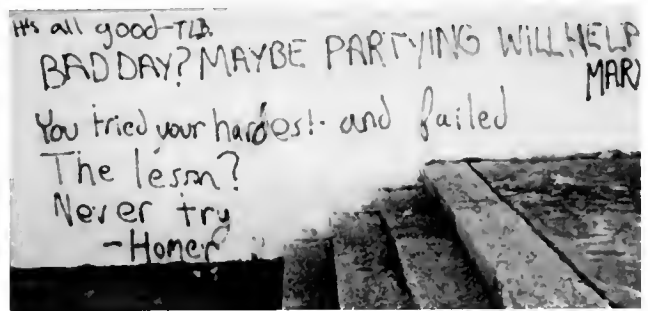 It's all good-TLB.
BAD DAY? MAYBE PARTYING WILL HELP
MARY
You tried your hardest- and failed
The lesson?
Never try
-Homer